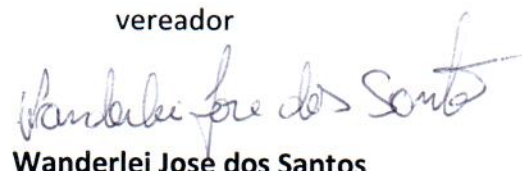 vereador
Wanderlei Jose dos Santos
Wanderlei Jose dos Santos